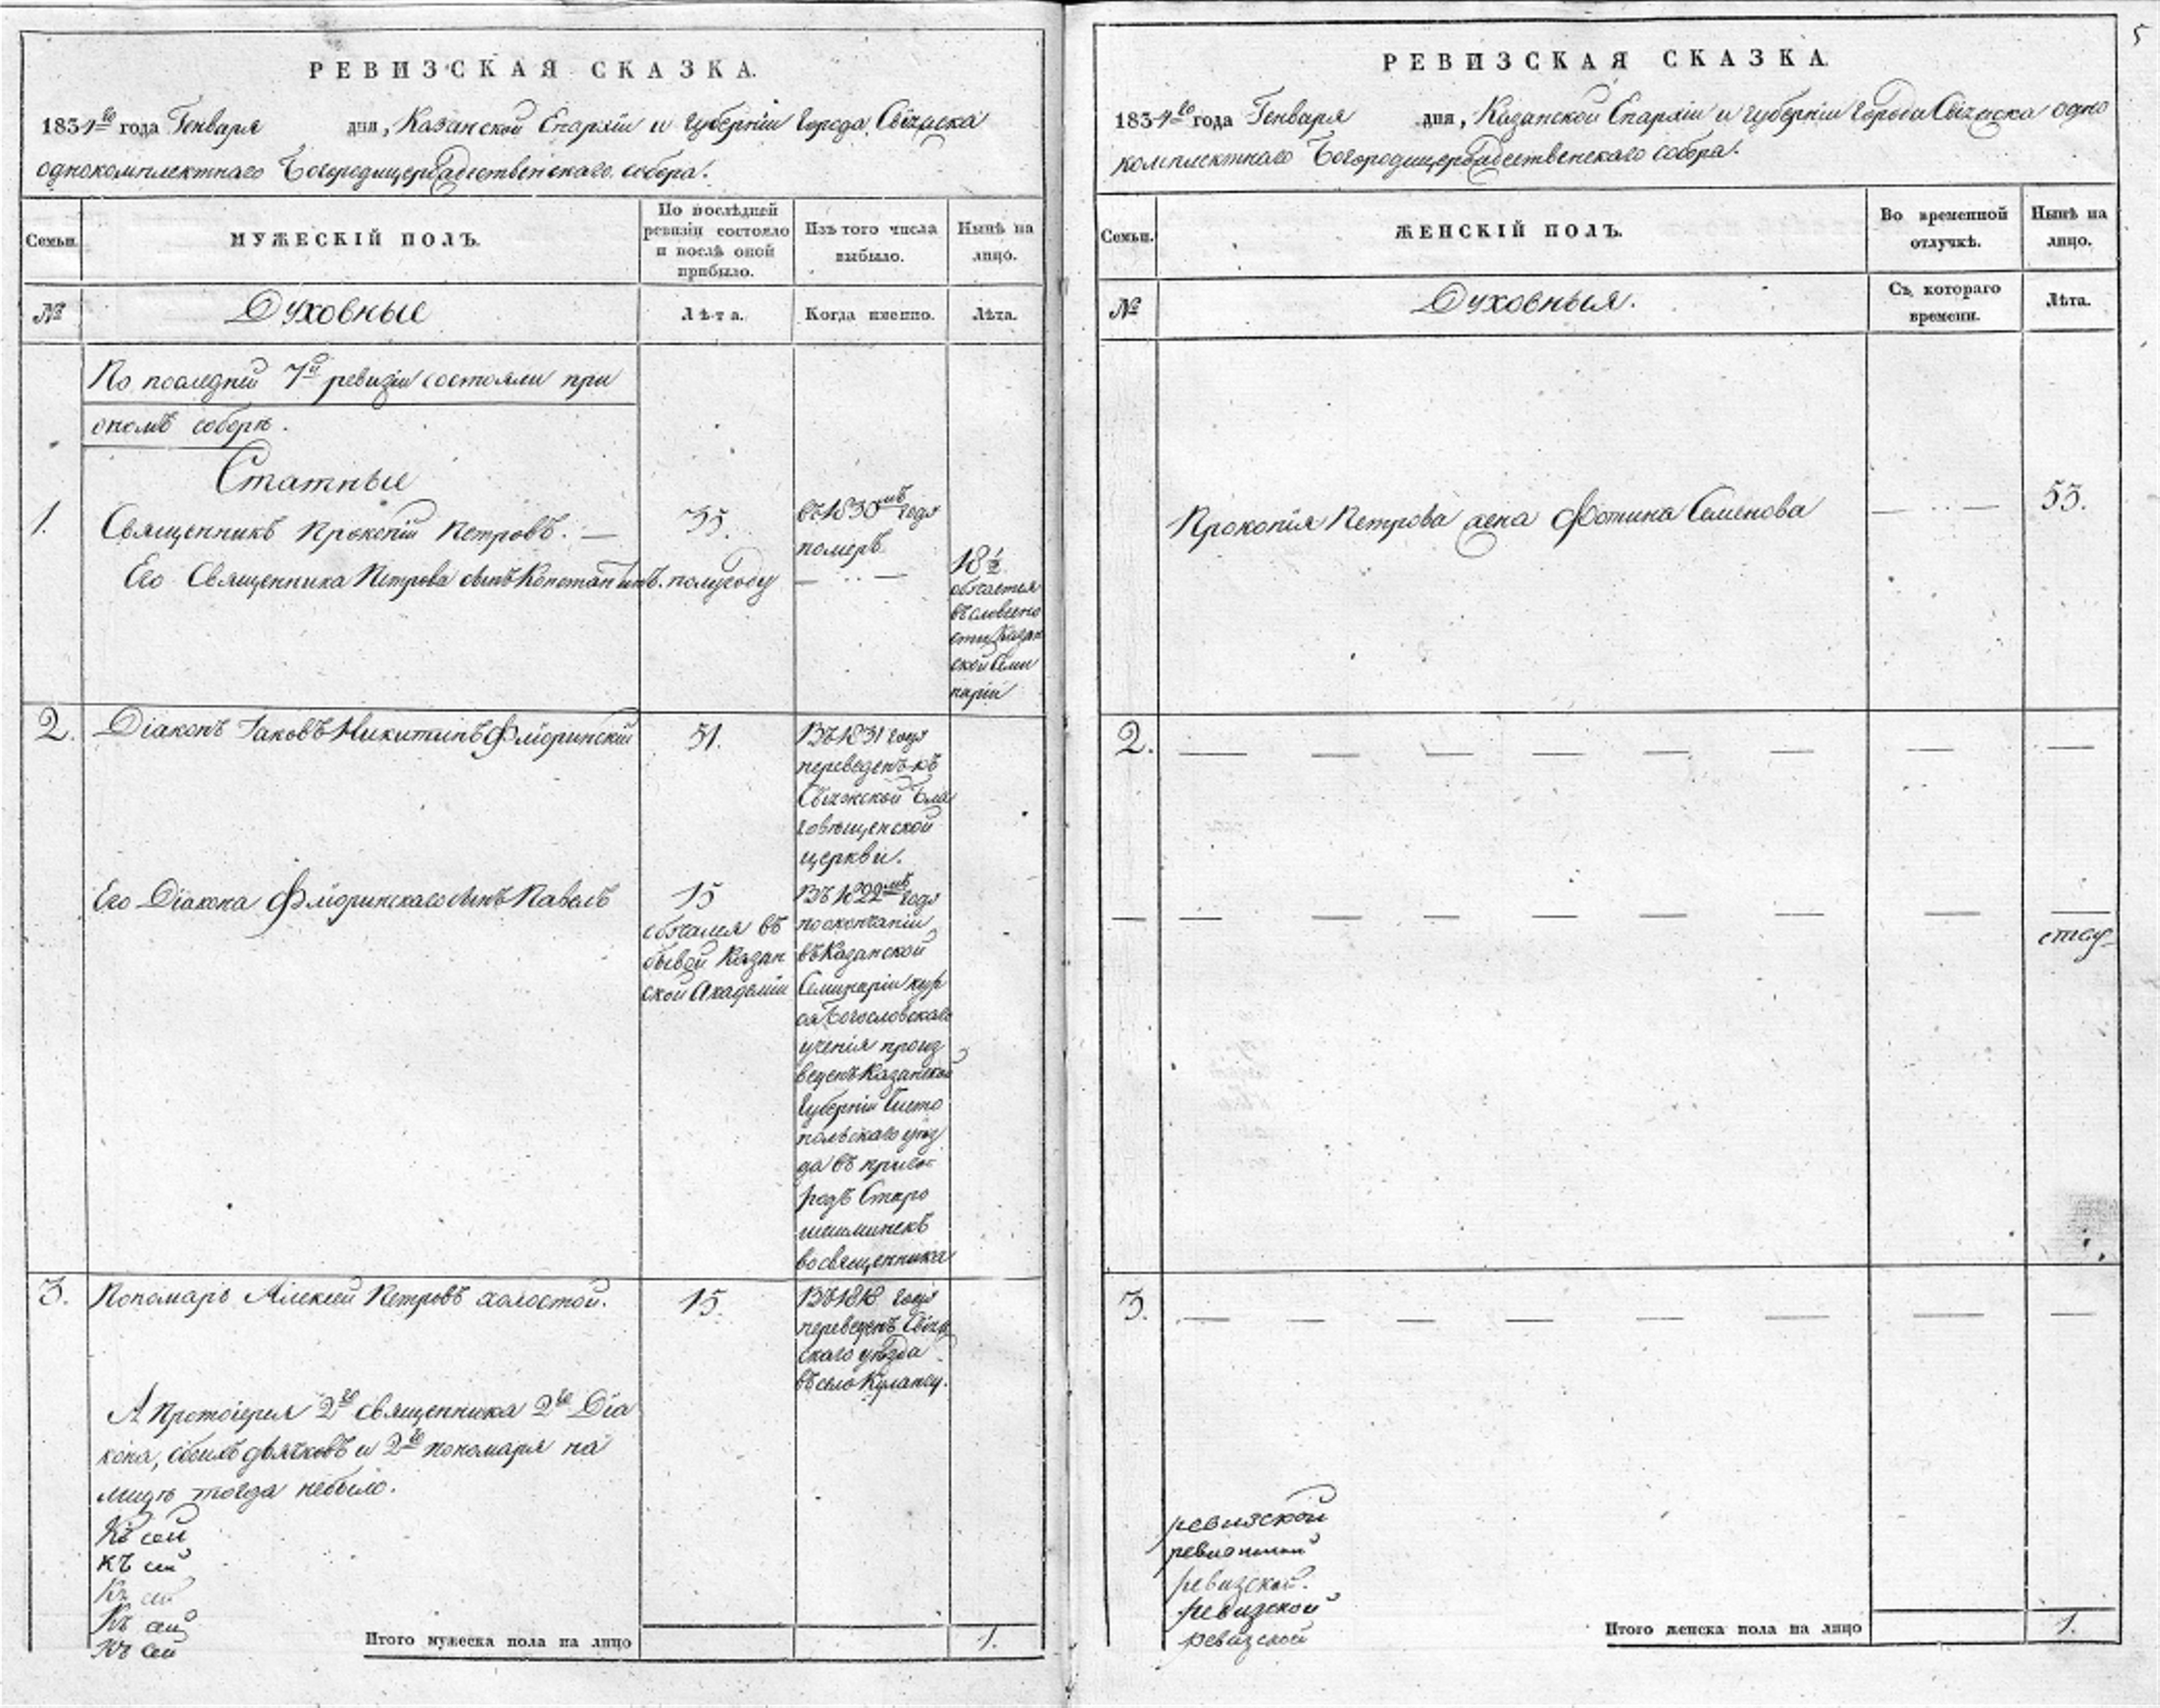 РЕВИЗСКАЯ СКАЗКА.
1834го года Генваря дня, Казанской Епархіи и Губерніи города Свіяжска
однокомплектнаго Богородицерождественскаго собора.
Семьи.
МУЖЕСКІЙ ПОЛЪ.
По послѣдней ревизіи состояло и послѣ оной прибыло.
Изъ того числа выбыло.
Нынѣ на лицо.
№
Духовные
Лѣта.
Когда именно.
Лѣта.
По последней 7й ревизіи состояли при
ономъ соборѣ.
Статные
1.
Священникъ Прокопій Петровъ. —
35.
въ 1830мъ года
померъ.
Его Священника Петрова сынъ Константинъ.
полугоду
— .. —
18 ½
обучается
въ словесно
сти Казан
ской Семи
наріи
2.
Діаконъ Іаковъ Никитинъ Флоринскій
51.
Въ 1831 года
переведенъ къ
Свіяжской Бла
говѣщенской
церкви.
Его Діакона Флоринскаго сынъ Павелъ
15
обучался въ
бывой Казан
ской Академіи
Въ 1822мъ года
по окончаніи
въ Казанской
Семинаріи кур
са Богословскаго
ученія произ
веденъ Казанской
Губерніи Чисто
польскаго уѣз
да въ приго-
родъ Старо
шешминскъ
во священника
3.
Пономарь Алексей Петровъ холостой.
15.
Въ 1818 года
переведенъ Свіяж
скаго уѣзда
въ село Кулангу.
А Протоіерея 2го священника 2го Діа
кона, обоихъ дьячковъ и 2го пономаря на
лицѣ тогда небыло.
Къ сей
къ сей
Къ сей
Къ сей
Къ сей
Итого мужеска пола на лицо
1.
5
РЕВИЗСКАЯ СКАЗКА.
1834го года Генваря дня, Казанской Епархіи и Губерніи Города Свіяжска одно
комплектнаго Богородицерождественскаго собора.
Семьи.
ЖЕНСКІЙ ПОЛЪ.
Во временной отлучкѣ.
Нынѣ на лицо.
№
Духовныя.
Съ котораго времени.
Лѣта.
Прокопія Петрова жена Фотина Семенова
— .. —
53.
2.
3.
ревизской
ревизской
ревизской.
ревизской
ревизской
Итого женска пола на лицо
1.